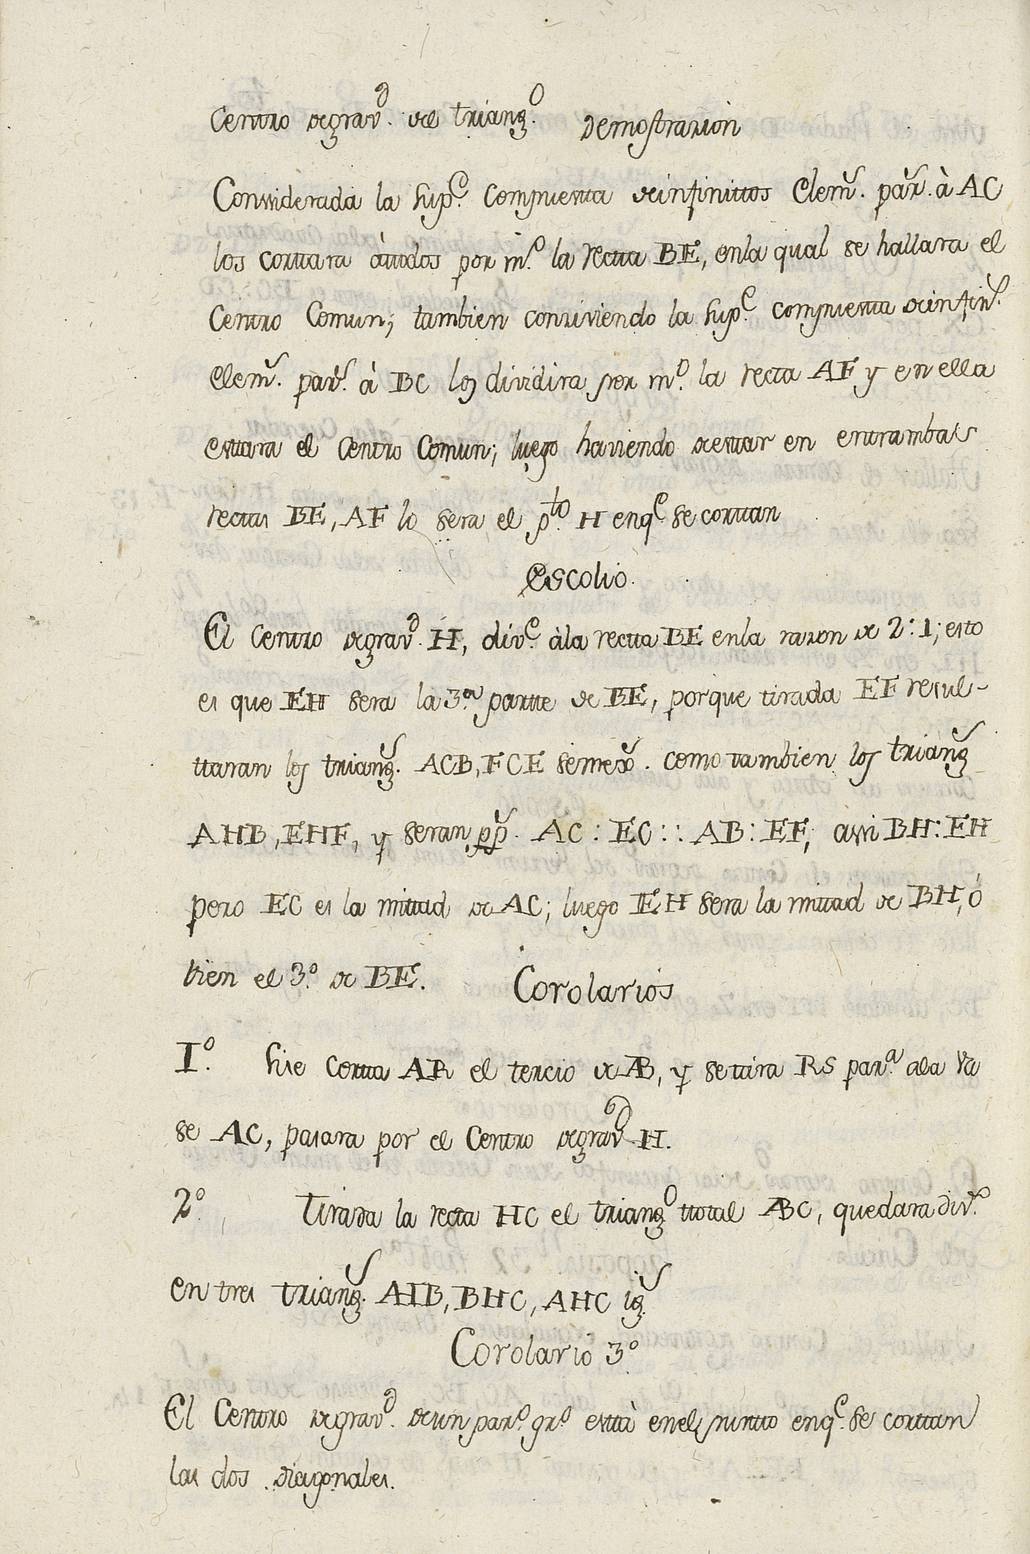 Centro degrav.d del triang.o Demostrazion
Considerada la sup.e compuesta deinfinittos Elem.s par.s à AC
los cortara átodos por m.o la rectta BE, enla qual se hallara el
Centro Comun; tambien conziviendo la sup.e compuesta deinfin.s
elem.s par.s à BC los dividira por m.o la recta AF y en ella
esttara el Centro Comun; luego haviendo deestar en entrambas
rectas BE, AF lo sera el p.to H enq.e se corttan
Escolio.
El Centro degrav.d H, div.e àla rectta BE enla razon de 2:1; esto
es que EH sera la 3.a partte de BE, porque tirada EF resul-
ttaran los triang.s ACB, FCE semex.s como tambien los triang.s
AHB, EHF, y seran pp.s AC : EC :: AB : EF; assi BH : EH
pero EC es la mittad de AC; luego EH sera la mittad de BH, ó
bien el 3.o de BE. Corolarios
1.o Sise cortta AR el tercio de AB, y settira RS par.a ala Va
se AC, pasara por el Centro degrav.d H.
2.o Tirada la recta HC el triang.o ttotal ABC, quedara div.o
en tres triang.s AHB, BHC, AHC ig.s
Corolario 3.o
El Centro degrav.d deun par.o gr.o esttà enel puntto enq.e se corttan
las dos diagonales.